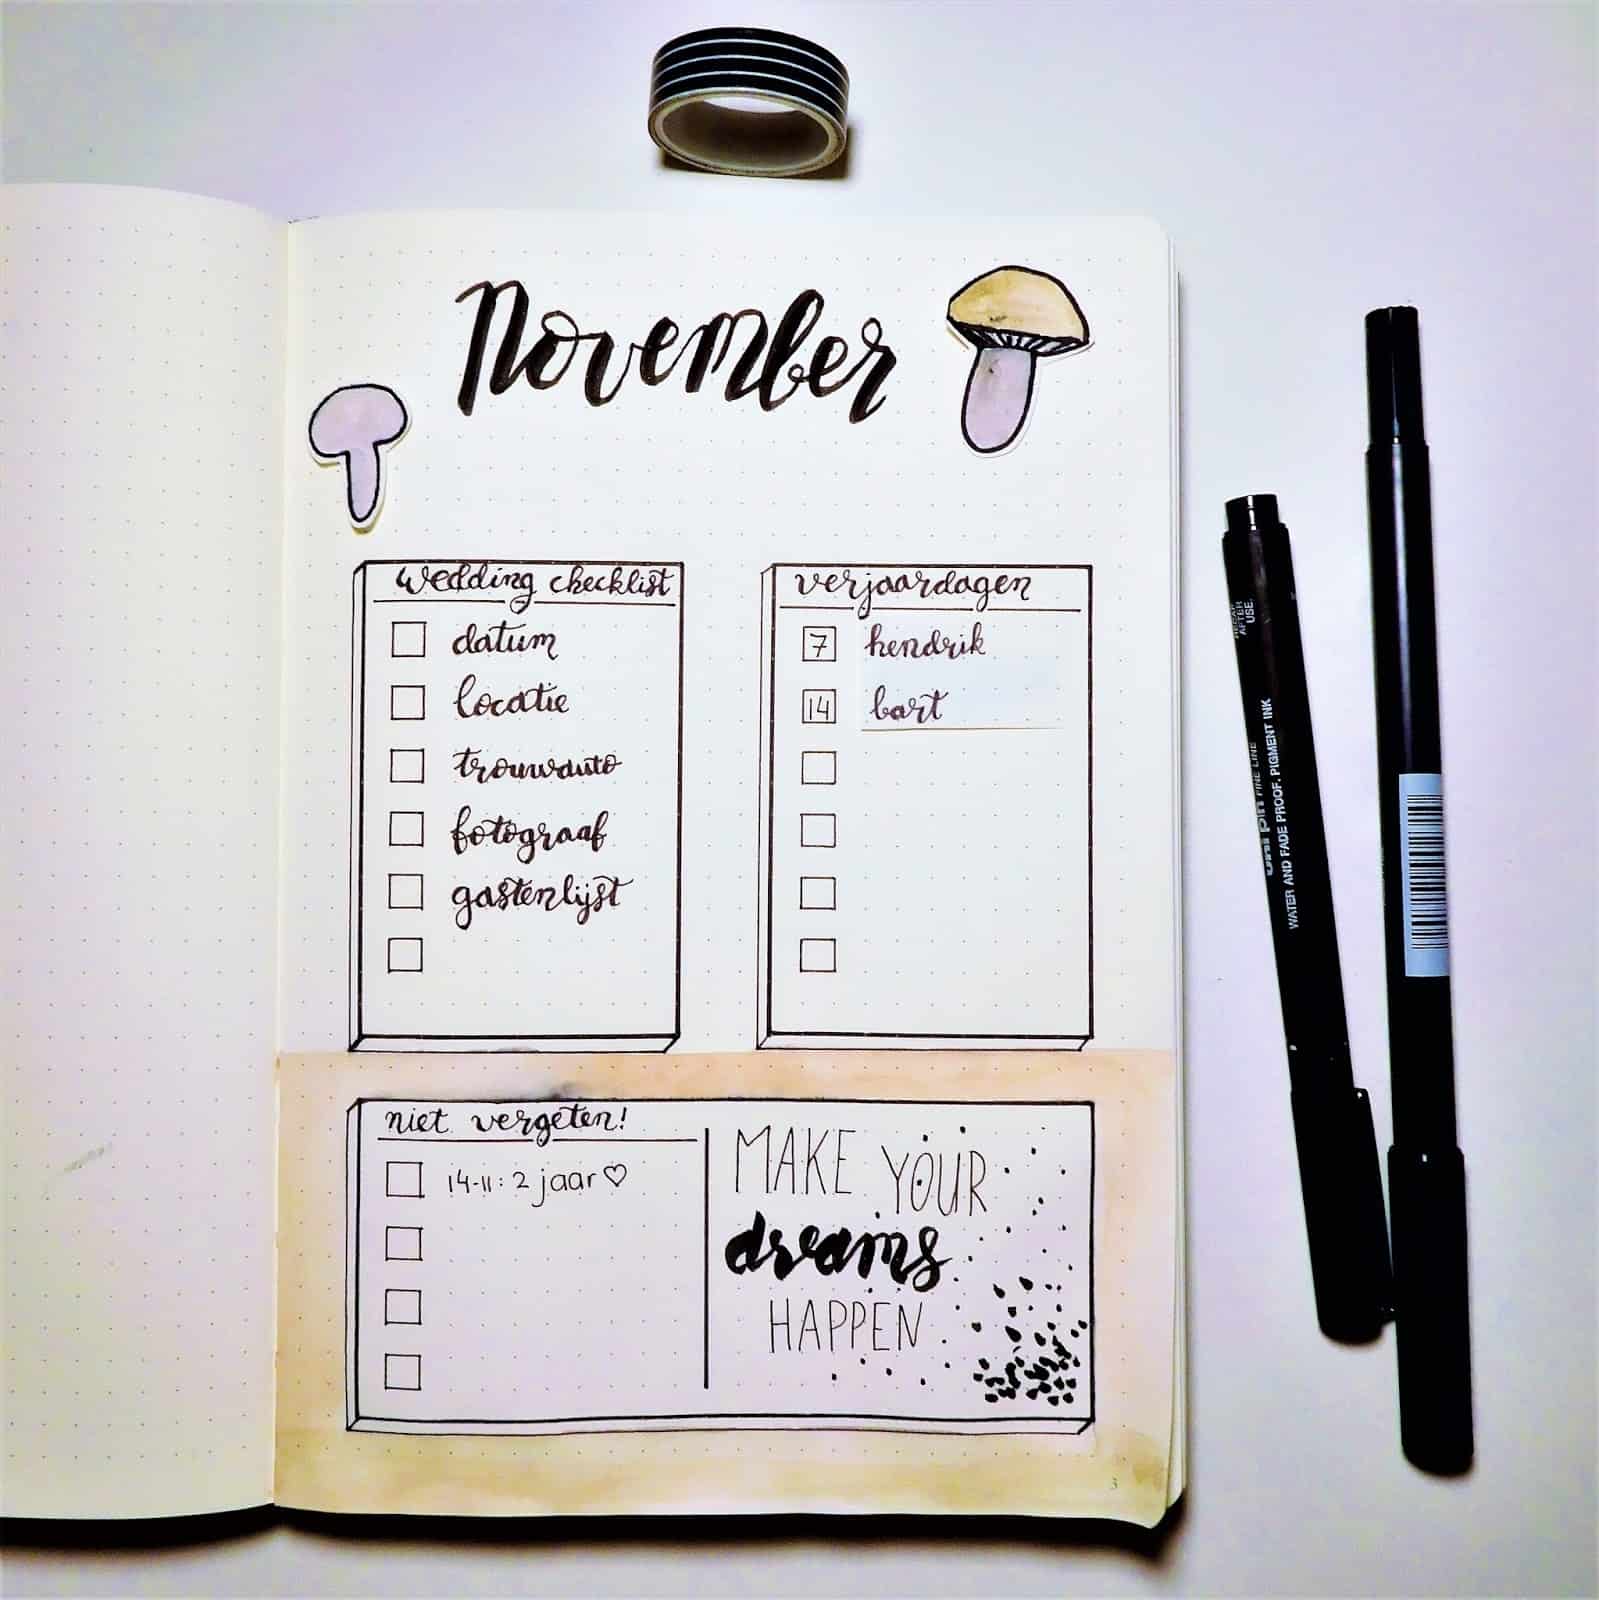 November
wedding checklist
datum
locatie
trouwauto
fotograaf
gastenlijst
verjaardagen
7 hendrik
14 bart
niet vergeten!
14-11: 2 jaar ♡
MAKE YOUR
dreams
HAPPEN.
3
RECAP
AFTER
USE.
uni pin FINE LINE
WATER AND FADE PROOF, PIGMENT INK